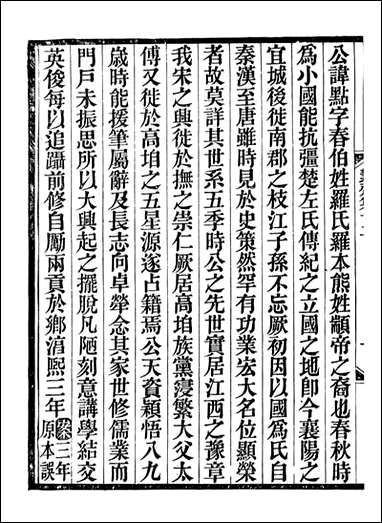 公諱點字春伯姓羅氏羅本熊姓顓帝之裔也春秋時
爲小國能抗彊楚左氏傳紀之立國之地卽今襄陽之
宜城後徙南郡之枝江子孫不忘厥初因以國爲氏自
秦漢至唐雖時見於史策然罕有功業宏大名位顯榮
者故莫詳其世系五季時公之先世實居江西之豫章
我宋之興徙於撫之崇仁厥居高㘵族黨寖繁大父太
傅又徙於高㘵之五星源遂占籍焉公天資穎悟八九
歳時能援筆屬辭及長志向卓犖念其家世修儒業而
門戸未振思所以大興起之擺脫凡陋刻意講學結交
英俊每以追躡前修自勵兩貢於鄉淳熙三年案三年原本誤